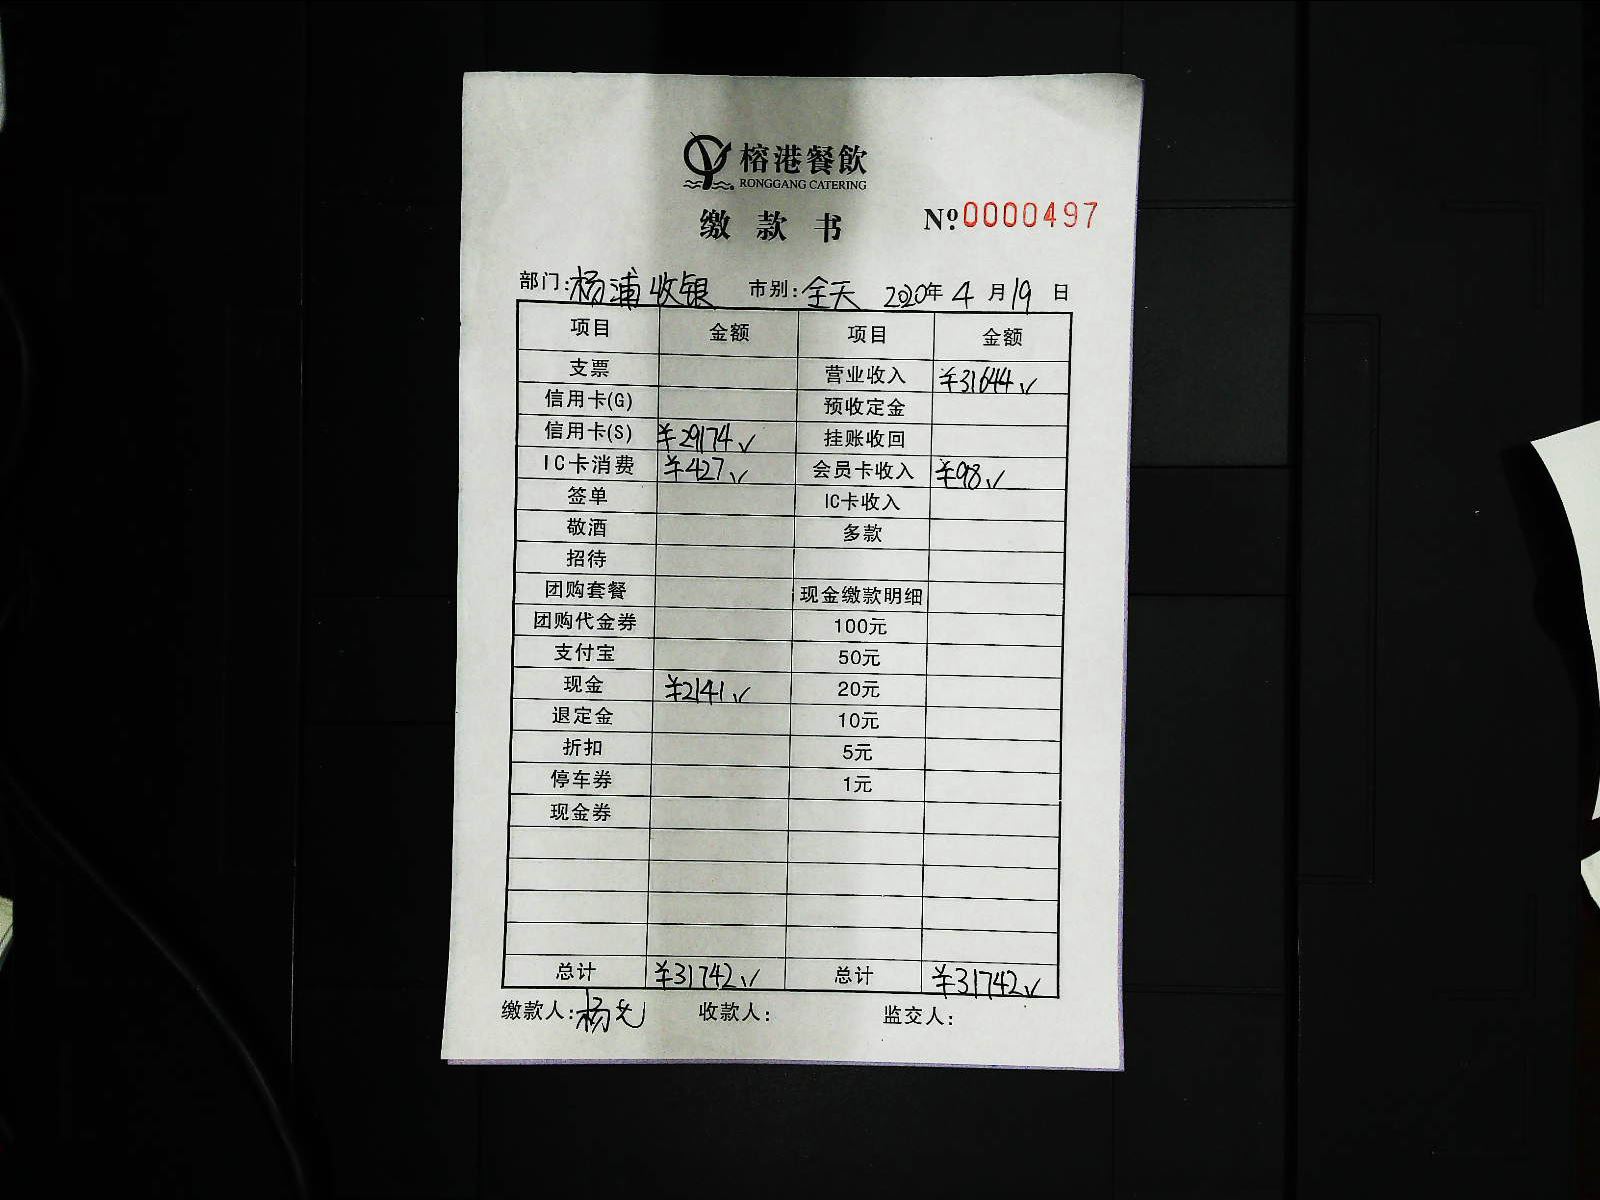 榕港餐飲
RONGGANG CATERING
缴款书 Nº:0000497
部门:杨浦收银 市别:全天 2020年4月19日
项目 金额 项目 金额
支票 营业收入 ¥31644√
信用卡(G) 预收定金
信用卡(S) ¥29174√ 挂账收回
IC卡消费 ¥427√ 会员卡收入 ¥98√
签单 IC卡收入
敬酒 多款
招待
团购套餐 现金缴款明细
团购代金券 100元
支付宝 50元
现金 ¥2141√ 20元
退定金 10元
折扣 5元
停车券 1元
现金券
总计 ¥31742√ 总计 ¥31742√
缴款人:杨 收款人: 监交人: